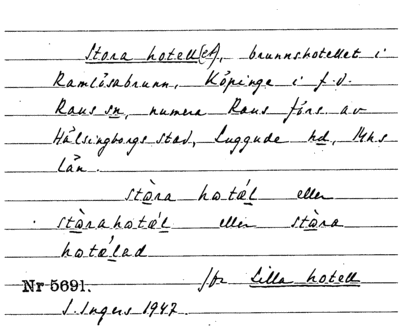 Stora hotell(et), brunnshotellet i
Ramlösabrunn, Köpinge i f.d.
Raus sn, numera Raus förs. av
Hälsingborgs stad, Luggude hd, Mhs
län.
stɷ̀ra hɷtǽl eller
stɷ̀rahɷtǽl eller stɷ̀ra
hɷtǽlad
Nr 5691. Jfr Lilla hotell
S. Ingers 1947.